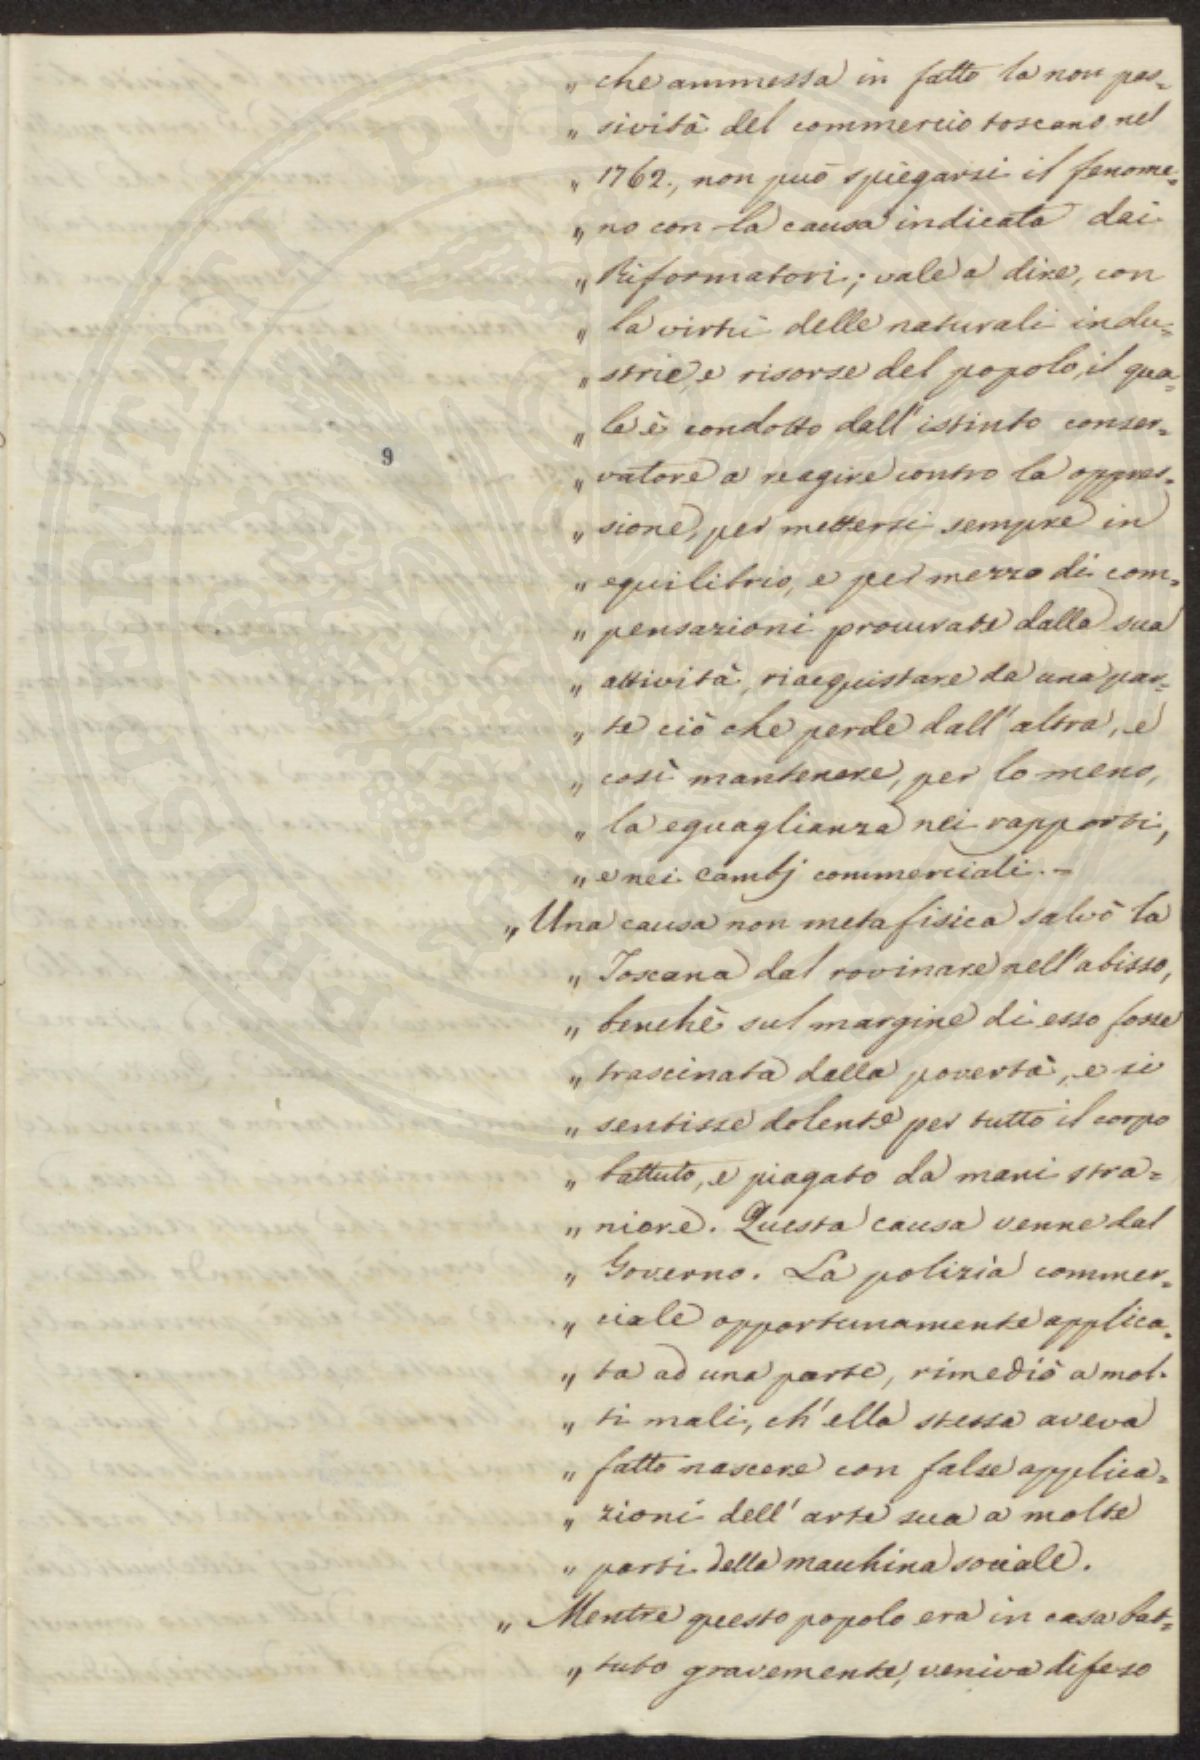 „ che ammessa in fatto la non pas=
„ sività del commercio toscano nel
„ 1762., non può spiegarsi il fenome=
„ no con la causa indicata dai
„ Riformatori; vale a dire, con
„ la virtù delle naturali indu=
„ strie, e risorse del popolo, il qua=
„ le è condotto dall'istinto conser=
9
„ vatore a reagire contro la oppres=
„ sione, per mettersi sempre in
„ equilibrio, e per mezzo di com=
„ pensazioni procurate dalla sua
„ attività, riacquistare da una par=
„ te ciò che perde dall'altra, e
„ così mantenere, per lo meno,
„ la eguaglianza nei rapporti,
„ e nei cambj commerciali. =
„ Una causa non metafisica salvò la
„ Toscana dal rovinare nell'abisso,
„ benchè sul margine di esso fosse
„ trascinata dalla povertà, e si
„ sentisse dolente per tutto il corpo
„ battuto, e piagato da mani stra=
„ niere. Questa causa venne dal
„ Governo. La polizia commer=
„ ciale opportunamente applica=
„ ta ad una parte, rimediò a mol=
„ ti mali, ch'ella stessa aveva
„ fatto nascere con false applica=
„ zioni dell'arte sua a molte
„ parti della macchina sociale.
„ Mentre questo popolo era in casa bat=
„ tuto gravemente, veniva difeso